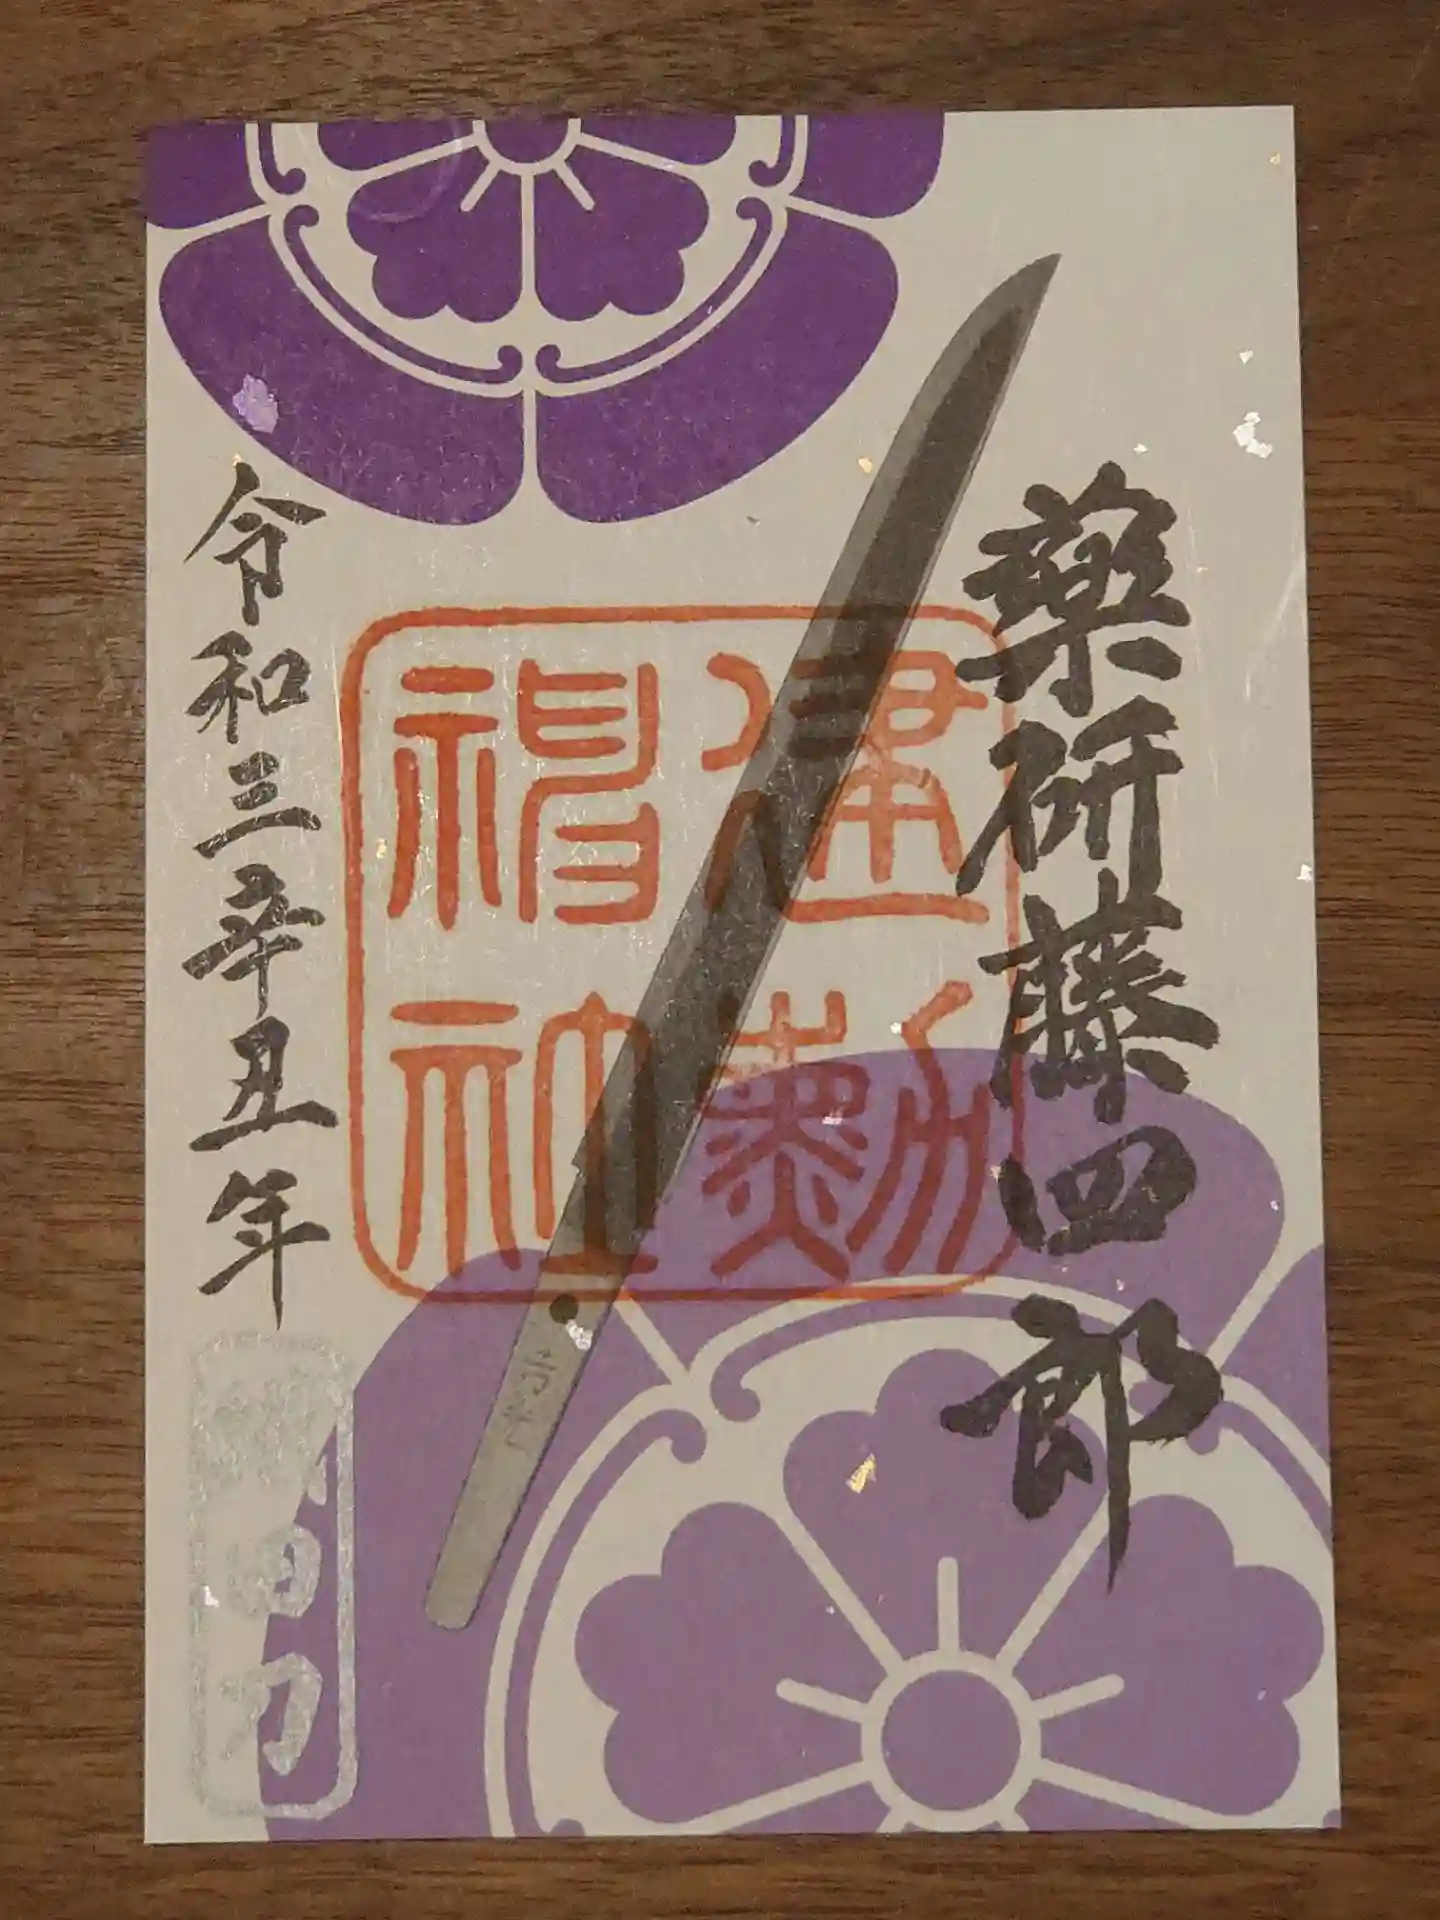 薬研藤四郎
建勲
神社
令和三辛丑年